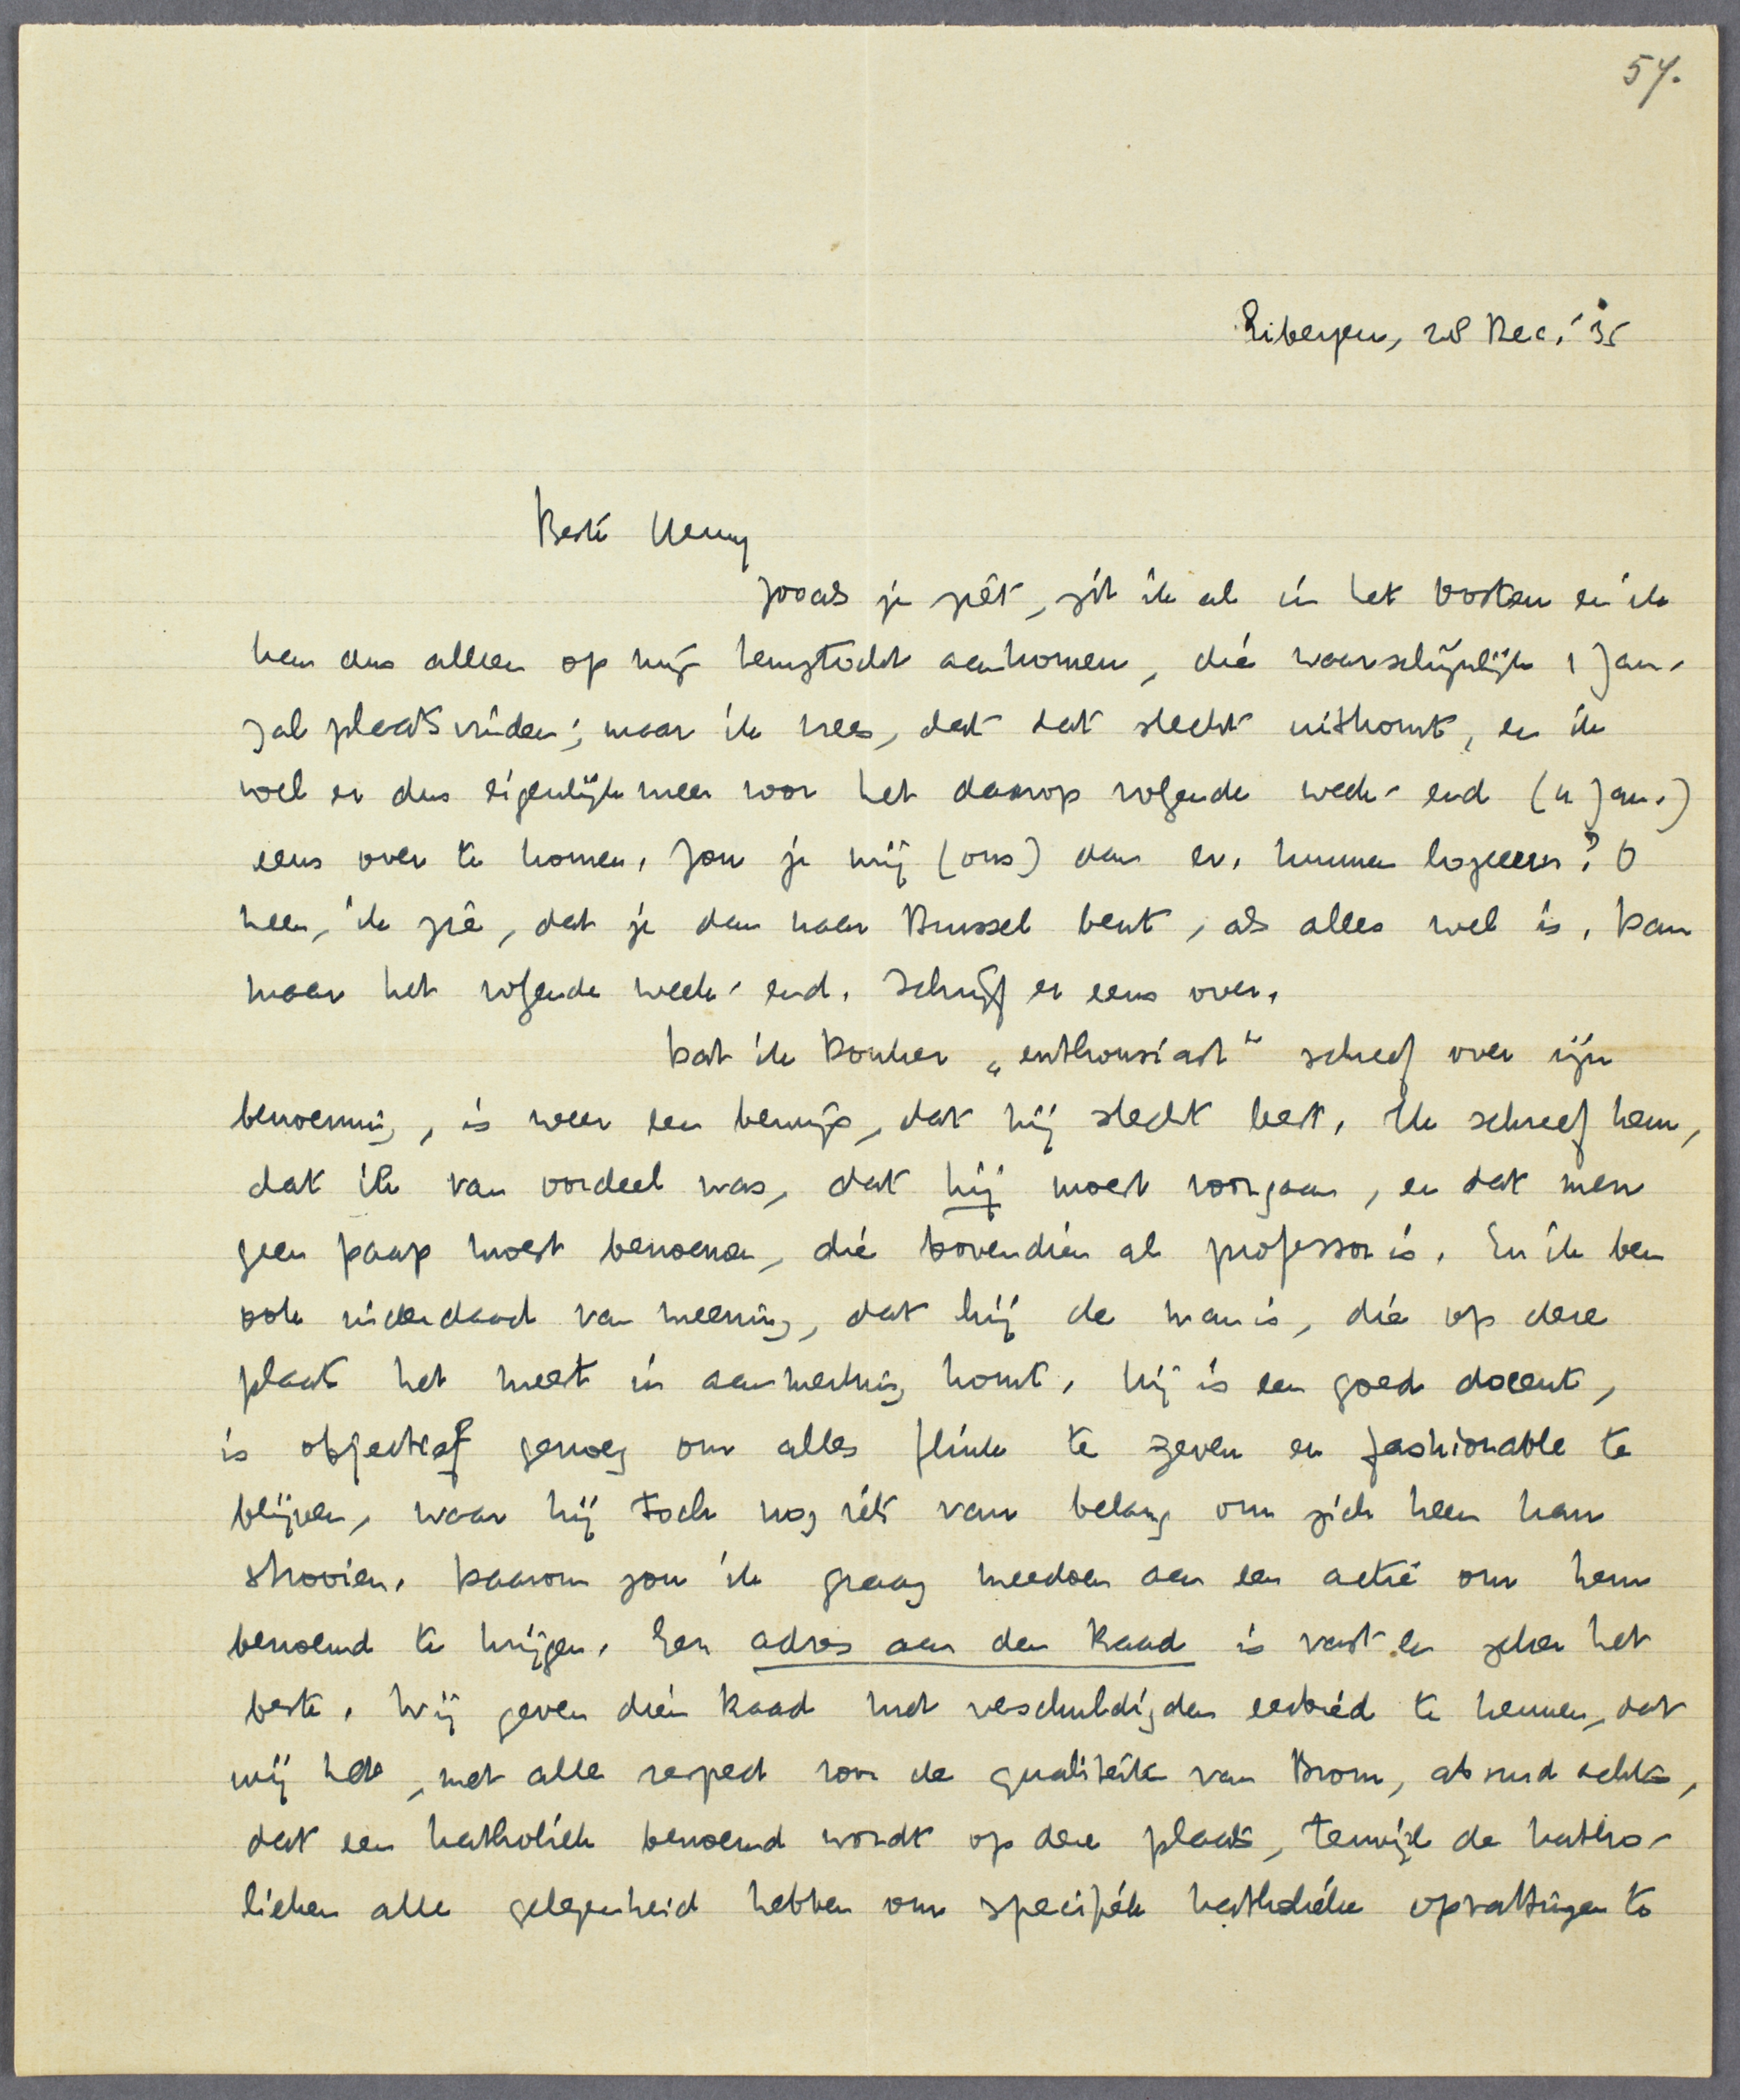 57.
Eibergen, 28 Dec. '35
Beste Henny
Zooals je ziet, zit ik al in het Oosten en ik
kan dus alleen op mijn terugtocht aankomen, die waarschijnlijk 1 Jan.
zal plaats vinden; maar ik vrees, dat dat slecht uitkomt, en ik
voel er dus eigenlijk meer voor het daarop volgende week-end (4 Jan.)
eens over te komen. Zou je mij (ons) dan ev. kunnen logeeren? O
neen, ik zie, dat je dan naar Brussel bent, als alles wel is. Dan
maar het volgende week-end. Schrijf er eens over.
Dat ik Donker „enthousiast" schreef over zijn
benoeming, is weer een bewijs, dat hij slecht leest. Ik schreef hem,
dat ik van oordeel was, dat hij moest voorgaan, en dat men
geen paap moest benoemen, die bovendien al professor is. En ik ben
ook inderdaad van meening, dat hij de man is, die op deze
plaats het meest in aanmerking komt. Hij is een goed docent,
is objectief genoeg om alles flink te geven en fashionable te
blijven, waar hij toch nog iets van belang om zich heen kan
strooien. Daarom zou ik graag meedoen aan een actie om hem
benoemd te krijgen. Een adres aan den Raad is vast en zeker het
beste. Wij geven dien Raad met verschuldigden eerbied te kennen, dat
wij het, met alle respect voor de qualiteiten van Brom, absurd achten,
dat een katholiek benoemd wordt op deze plaats, terwijl de katho-
lieken alle gelegenheid hebben om specifiek katholieke opvattingen te